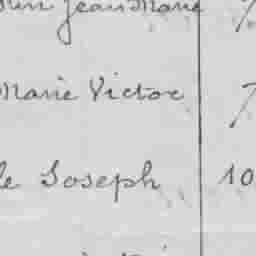 Jean Marie 7
Marie Victor 7
Joseph 10